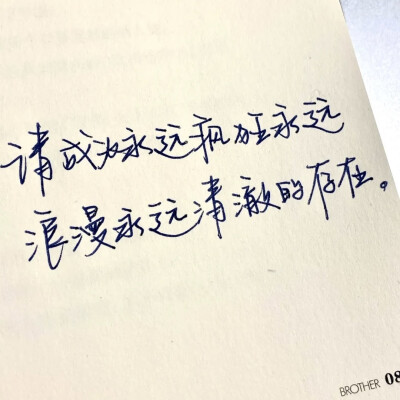 请成为永远疯狂永远
浪漫永远清澈的存在。
BROTHER 08